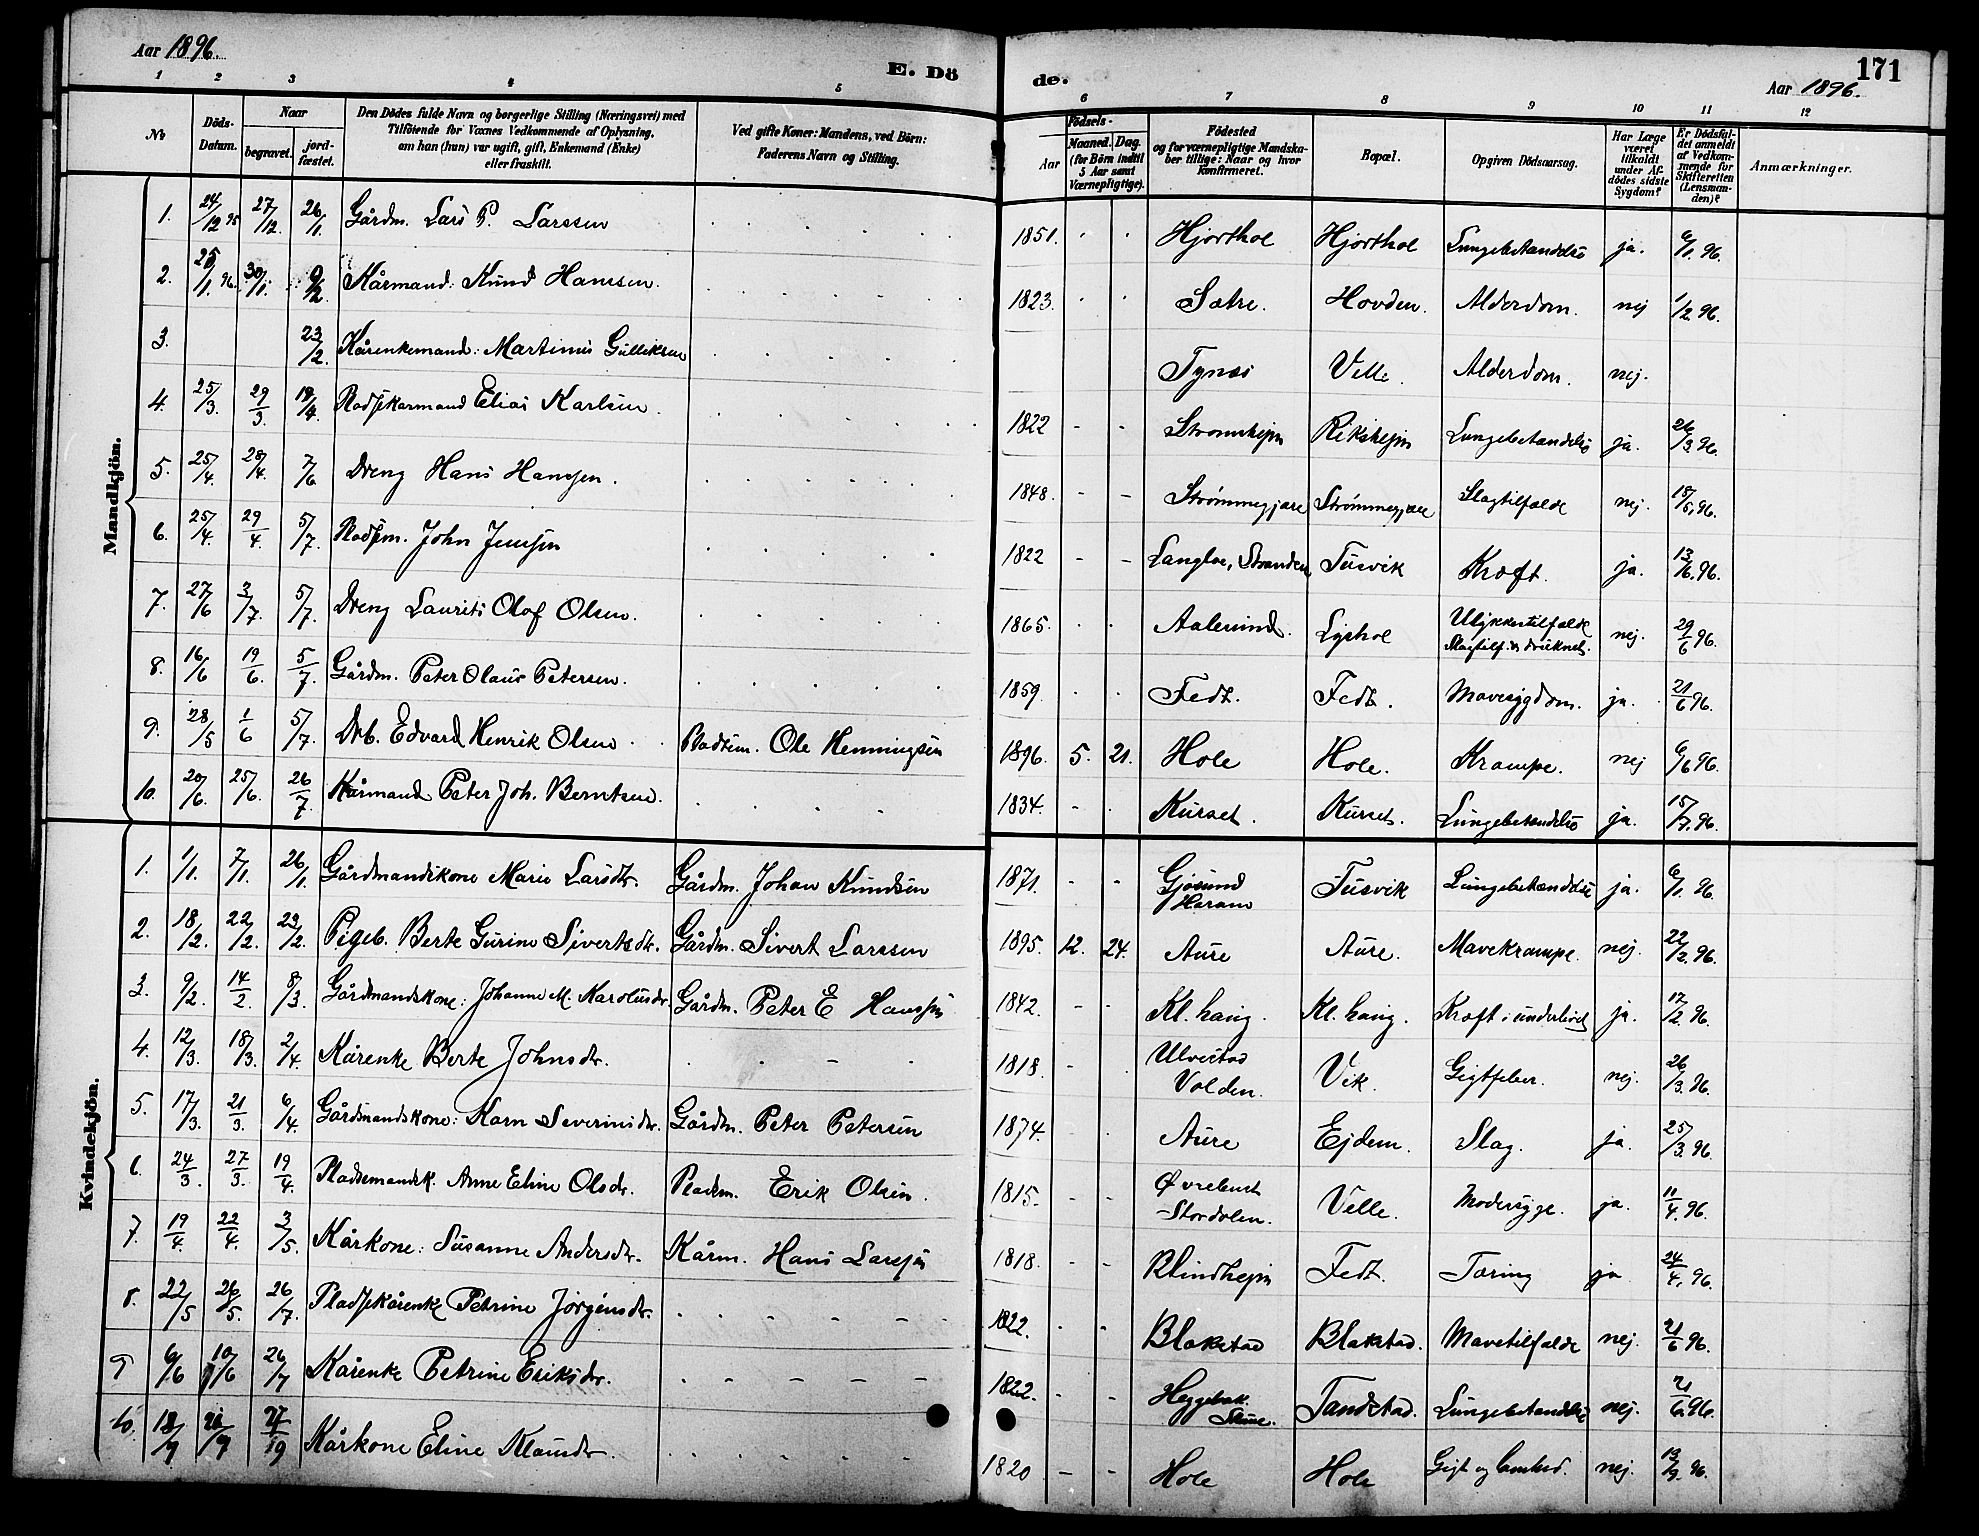 Aar 1896.
E. Dö
de.
171
Aar 1896.
1 2 3 4 5 6 7 8 9 10 11 12
No
Döds-Datum.
Naar
begravet.
jord-fæstet.
Den Dödes fulde Navn og borgerlige Stilling (Næringsvei) med
Tilföiende for Voxnes Vedkommende af Oplysning,
om han (hun) var ugift, gift, Enkemand (Enke)
eller fraskilt.
Ved gifte Koner: Mandens, ved Börn:
Faderens Navn og Stilling.
Födsels-
Aar
Maaned. Dag.
(for Börn indtil
5 Aar samt
Værnepligtige).
Födested
og for værnepligtige Mandska-
ber tillige: Naar og hvor
konfirmeret.
Bopæl.
Opgiven Dödsaarsag.
Har Læge
været
tilkaldt
under Af-
dödes sidste
Sygdom?
Er Dödsfal-
det anmeldt
af Vedkom-
mende for
Skifteretten
(Lensman-
den)?
Anmærkninger.
Mandkjön.
1. 24/12 95 27/12. 26/1. Gårdm. Lars P. Larssen 1851. Hjorthol Hjorthol Lungebetændelse ja. 6/1. 96.
2. 25/1. 96. 30/1. 9/2 Kårmand: Knud Hanssen. 1823. Sætre. Hovden. Alderdom. nej 1/2. 96.
3. 23/2. Kårenkemand: Martinus Gulliksen Tynes Velle. Alderdom. nej.
4. 25/3. 29/3. 19/4. Pladskarmand Elias Karlsen. 1822 - - Strømshejm Rikshejm Lungebetændelse ja. 26/3. 96.
5. 25/4. 28/4. 7/6 Dreng Hans Hansen. 1848. - - Strømmegjære Strømmegjære Slagtilfælde nej. 15/5. 96.
6. 25/4. 29/4. 5/7. Pladsm. John Jensen 1822 - - Langloe, Stranden Tusvik Kræft. ja. 13/6. 96.
7. 27/6 3/7. 5/7. Dreng Laurits Olaf Olsen. 1865. Aalesund. Lyshol Ulykkestilfælde Slagtilf. og druknet. nej. 29/6 96.
8. 16/6 19/6. 5/7. Gårdm. Peter Olaus Petersen. 1859. Fedt. Fedt. Mavesygdom. ja. 21/6 96.
9. 28/5 1/6 5/7. Drb. Edvard Henrik Olsen Pladsem. Ole Henningsen 1896. 5. 21. Hole Hole. Krampe. nej 6/6 96.
10. 20/6. 25/6. 26/7. Kårmand Peter Joh. Berntsen. 1834. Kurset. Kurset. Lungebetændelse ja. 15/7. 96.
Kvindekjön.
1. 1/1. 7/1. 26/1. Gårdmandskone Marie Larsdtr. Gårdm. Johan Knudsen 1871. - - Gjøsund Haram Tusvik Lungebetændelse ja. 6/1 96.
2. 18/2. 22/2. 23/2. Pigeb. Berte Gurine Sivertsdtr. Gårdm. Sivert Larssen 1895. 12. 24. Aure Aure. Mavekrampe. nej. 22/2. 96.
3. 9/2. 14/2. 8/3. Gårdmandskone: Johanne M. Karolusdtr. Gårdm. Peter E Hanssen 1842. - - Kl. haug. Kl. haug. Kræft i underlivet ja. 17/2. 96.
4. 12/3. 18/3. 2/4. Kårenke Berte Johnsdtr. 1818. - Ulvestad Volden. Vik. Gigtfeber. nej. 26/3. 96.
5. 17/3. 21/3. 6/4. Gårdmandskone: Karn Severinsdtr. Gårdm. Peter Petersen 1874. Aure Ejdem. Slag. ja. 25/3. 96.
6. 24/3. 27/3. 19/4. Pladsemandsk. Anne Eline Olsdr. Pladsm. Erik Olsen. 1815. - - Øvrebust Stordalen. Velle. Modersyge. ja. 11/4. 96.
7. 19/4. 22/4. 3/5. Kårkone: Susanne Andersdtr. Kårm. Hans Larssen 1818. - - Blindhejm Fedt. Tæring ja 24/4. 96.
8. 22/5 26/5. 26/7. Pladskårenke Petrine Jørgensdtr. 1822. - - Blakstad Blakstad. Mavetilfælde nej. 21/6 96.
9 6/6 10/6 26/7 Kårenke Petrine Eriksdtr. 1822. - Heggebak. Skue. Tandstad. Lungebetændelse nej. 21/6. 96.
10. 18/9 21/9 27/9 Kårkone Eline Klausdtr. 1820 - - Hole Hole nej. 13/9. 96.